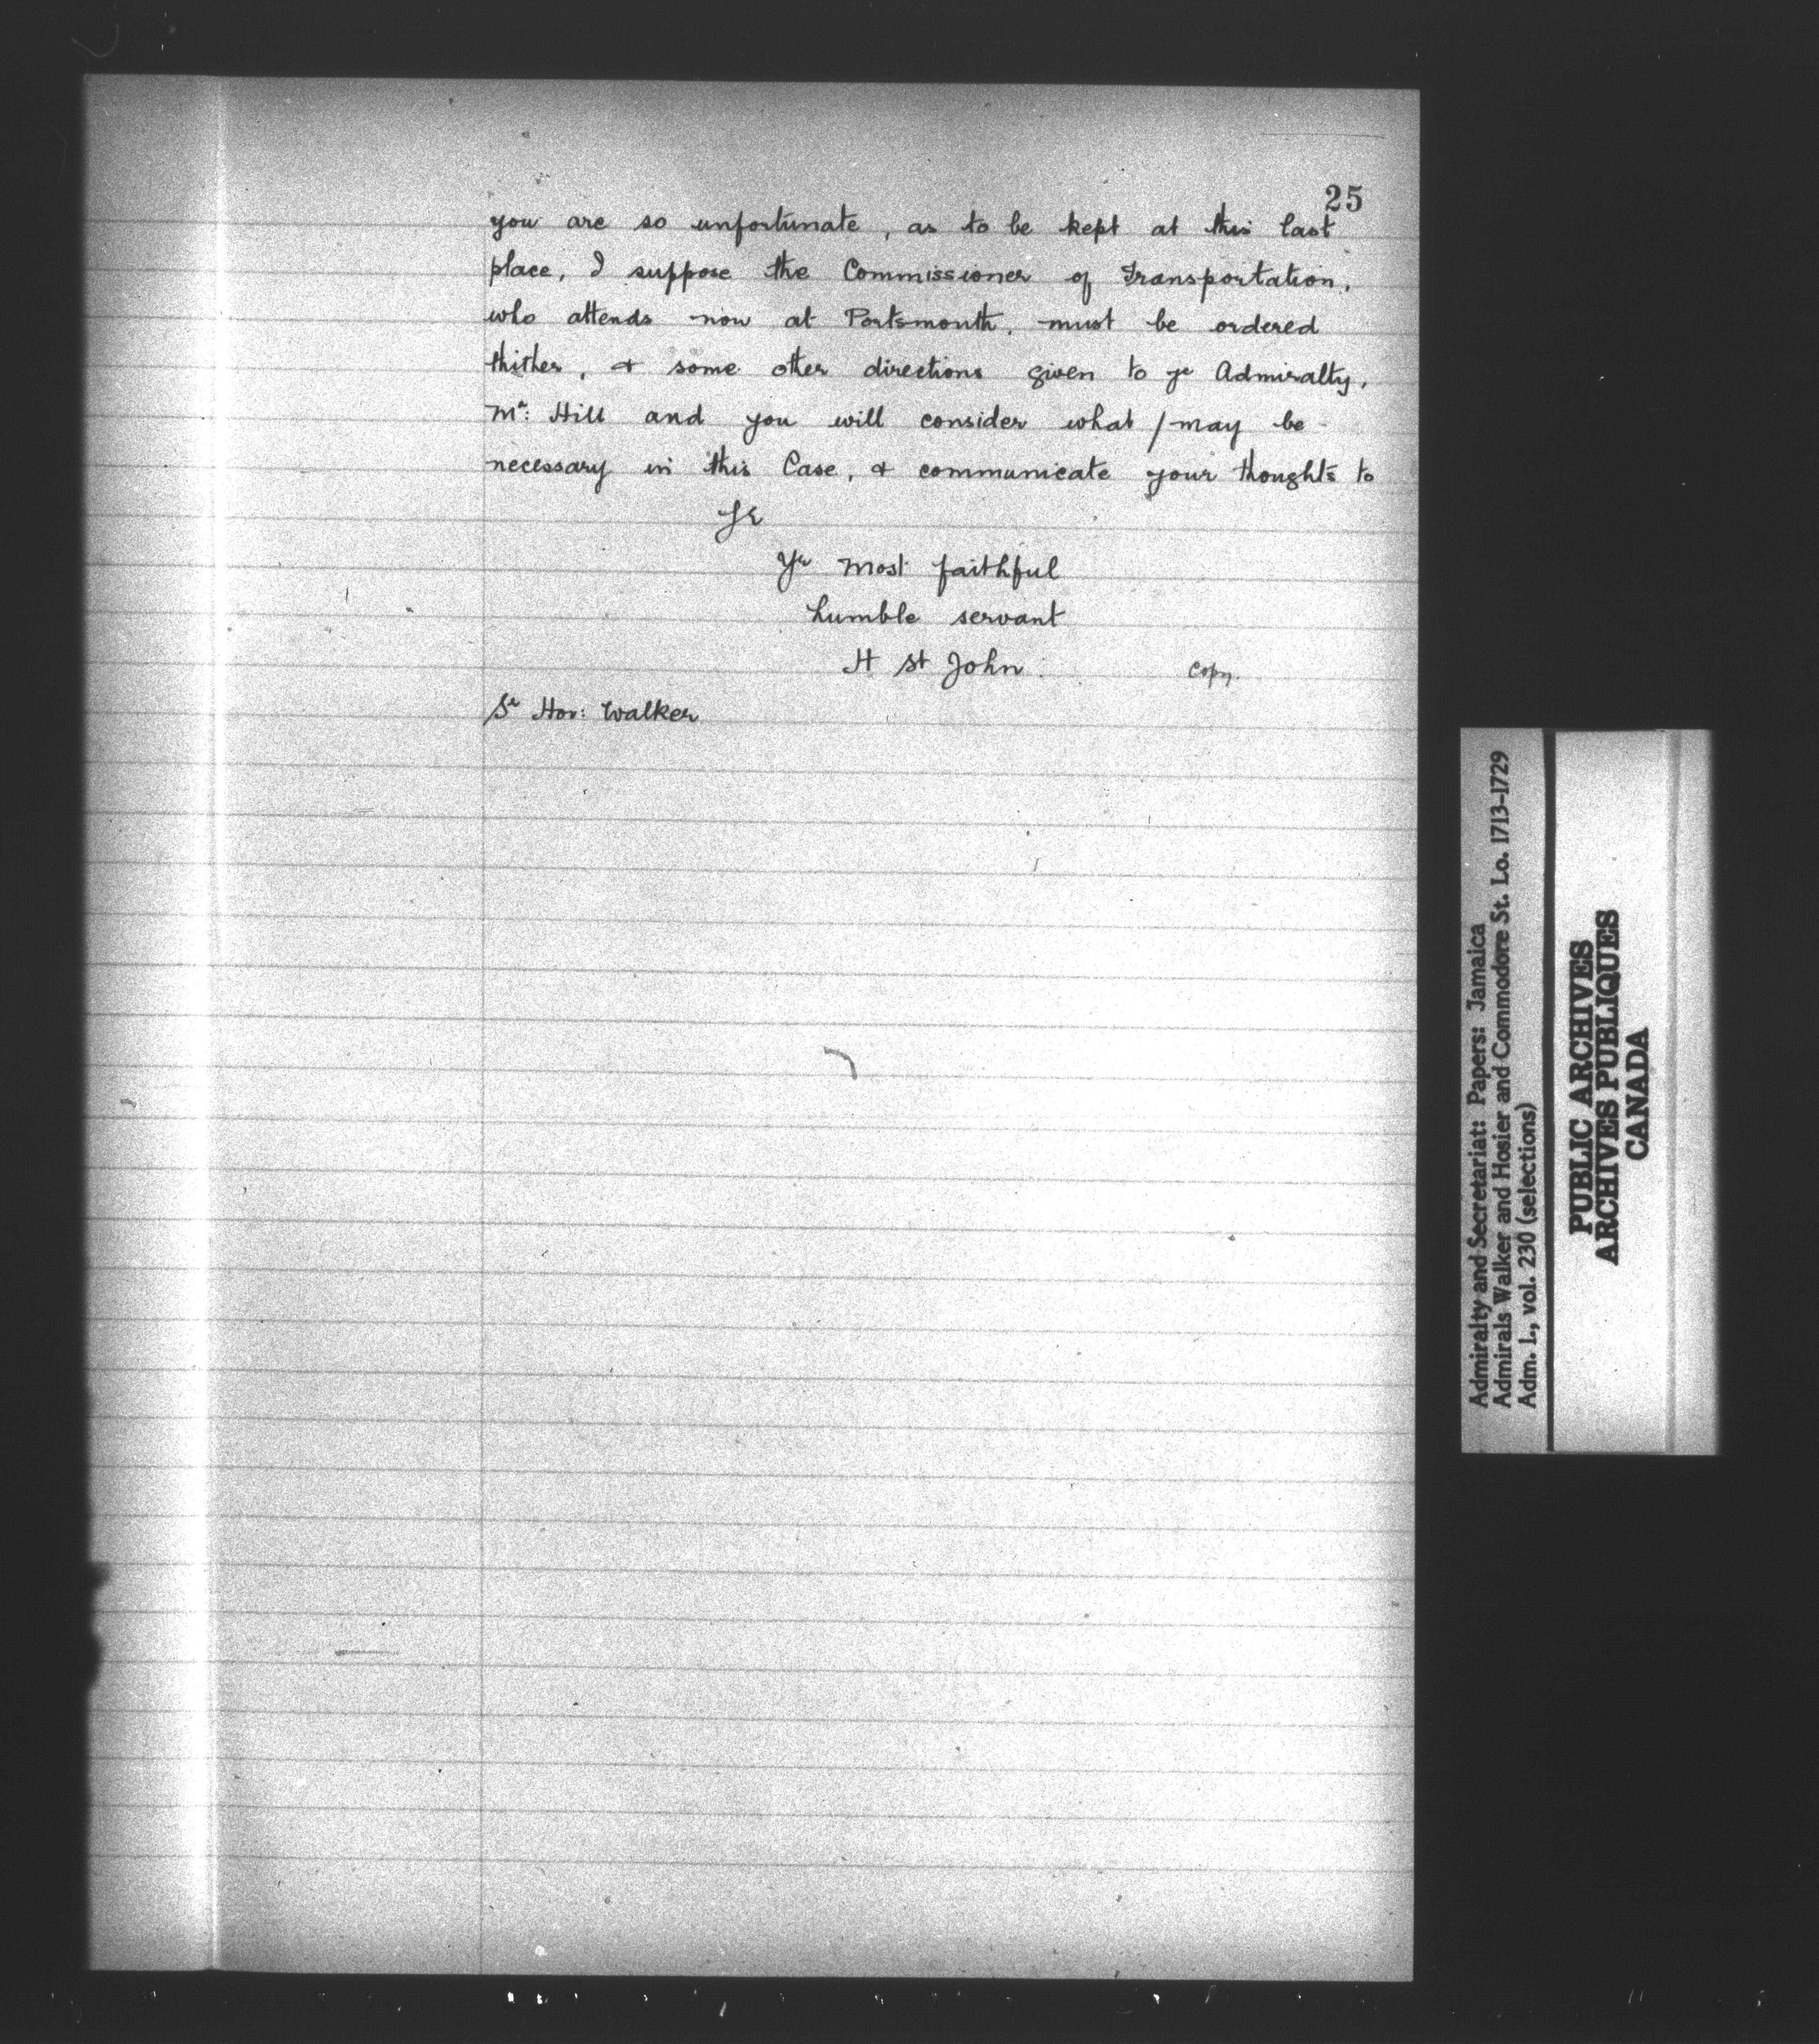 25
you are so unfortunate, as to be kept at this last
place, I suppose the Commissioner of Transportation,
who attends now at Portsmouth, must be ordered
thither, & some other directions given to ye Admiralty,
Mr: Hill and you will consider what / may be
necessary in this Case, & communicate your thoughts to
Sr
Yr most faithful
humble servant
H St John.
Copy.
Sr Hov: Walker
Admiralty and Secretariat: Papers: Jamaica
Admirals Walker and Hosier and Commodore St. Lo. 1713-1729
Adm. 1., vol. 230 (selections)
PUBLIC ARCHIVES
ARCHIVES PUBLIQUES
CANADA